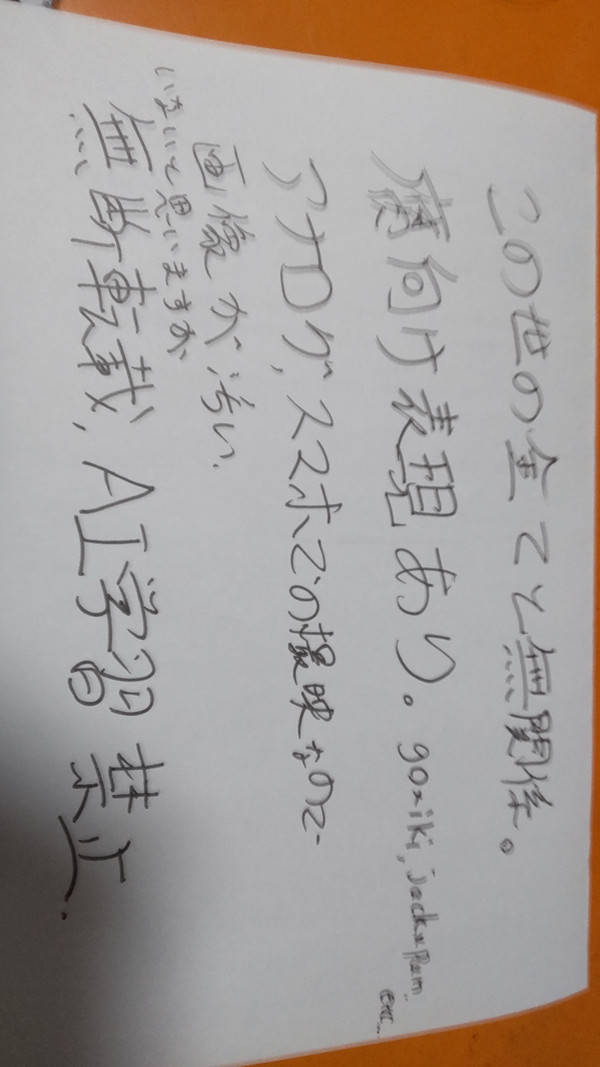 この世の全てと無関係。
腐向け表現あり。go×iki, Jack×Ram. etc...
アナログ、スマホでの撮映なので
画像が汚い.
いないと思いますが
無断転載、AI学習禁止.